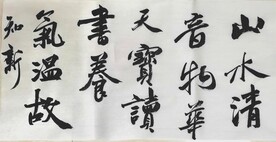 山水清
音物華
天寶讀
書養
氣溫故
知新